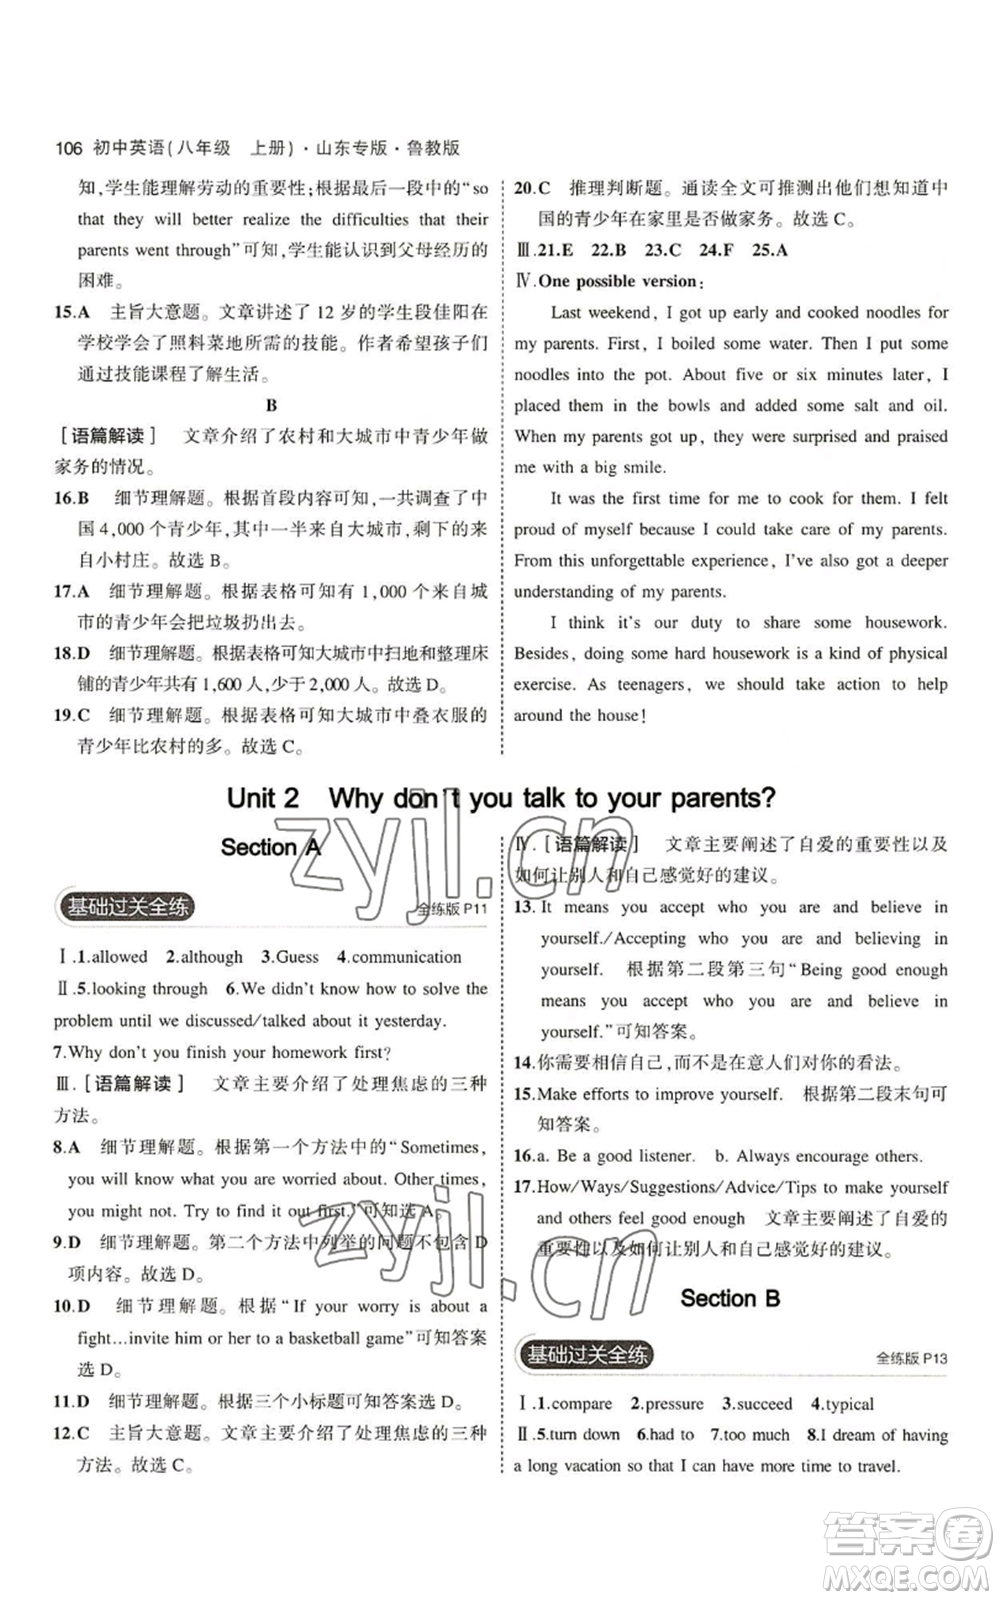 106 初中英语(八年级　上册)·山东专版·鲁教版
知,学生能理解劳动的重要性;根据最后一段中的“so
that they will better realize the difficulties that their
parents went through”可知,学生能认识到父母经历的
困难。
15.A　主旨大意题。文章讲述了 12 岁的学生段佳阳在
学校学会了照料菜地所需的技能。作者希望孩子们
通过技能课程了解生活。
B
[语篇解读]　文章介绍了农村和大城市中青少年做
家务的情况。
16.B　细节理解题。根据首段内容可知,一共调查了中
国 4,000 个青少年,其中一半来自大城市,剩下的来
自小村庄。故选 B。
17.A　细节理解题。根据表格可知有 1,000 名来自城
市的青少年会把垃圾扔出去。
18.D　细节理解题。根据表格可知大城市中扫地和整理床
铺的青少年共有 1,600 人,少于 2,000 人。故选 D。
19.C　细节理解题。根据表格可知大城市中叠衣服的
青少年比农村的多。故选 C。
20.C　推理判断题。通读全文可推测出他们想知道中
国的青少年在家里是否做家务。故选 C。
Ⅲ.21.E　22.B　23.C　24.F　25.A
Ⅳ.One possible version:
Last weekend, I got up early and cooked noodles for
my parents. First, I boiled some water. Then I put some
noodles into the pot. About five or six minutes later, I
placed them in the bowls and added some salt and oil.
When my parents got up, they were surprised and praised
me with a big smile.
It was the first time for me to cook for them. I felt
proud of myself because I could take care of my parents.
From this unforgettable experience, I've also got a deeper
understanding of my parents.
I think it's our duty to share some housework.
Besides, doing some hard housework is a kind of physical
exercise. As teenagers, we should take action to help
around the house!
Unit 2　Why don't you talk to your parents?
Section A
基础过关全练　全练版 P11
Ⅰ.1.allowed　2.although　3.Guess　4.communication
Ⅱ.5.looking through　6.We didn't know how to solve the
problem until we discussed/talked about it yesterday.
7.Why don't you finish your homework first?
Ⅲ.[语篇解读]　文章主要介绍了处理焦虑的三种
方法。
8.A　细节理解题。根据第一个方法中的“Sometimes,
you will know why you are worried about. Other times,
you might not. Try to find it out first.”可知选 A。
9.D　细节理解题。第二个方法中列举的问题不包含 D
项内容。故选 D。
10.D　细节理解题。根据“If your worry is about a
fight…invite him or her to a basketball game”可知答案
选 D。
11.D　细节理解题。根据三个小标题可知答案选 D。
12.C　主旨大意题。文章主要介绍了处理焦虑的三种
方法。故选 C。
Ⅳ.[语篇解读]　文章主要阐述了自爱的重要性以及
如何让别人和自己感觉好的建议。
13. It means you accept who you are and believe in
yourself./Accepting who you are and believing in
yourself.　根据第二段第三句“Being good enough
means you accept who you are and believe in
yourself.”可知答案。
14.你需要相信自己,而不是在意人们对你的看法。
15.Make efforts to improve yourself.　根据第二段末句可
知答案。
16.a. Be a good listener.　b. Always encourage others.
17.How/Ways/Suggestions/Advice/Tips to make yourself
and others feel good enough　文章主要阐述了自爱的
重要性以及如何让别人和自己感觉好的建议。
Section B
基础过关全练　全练版 P13
Ⅰ.1.compare　2.pressure　3.succeed　4.typical
Ⅱ.5.turn down　6.had to　7.too much　8.I dream of having
a long vacation so that I can have more time to travel.
zyjl.cn
zyjl.cn
答案圈
MXQE.COM